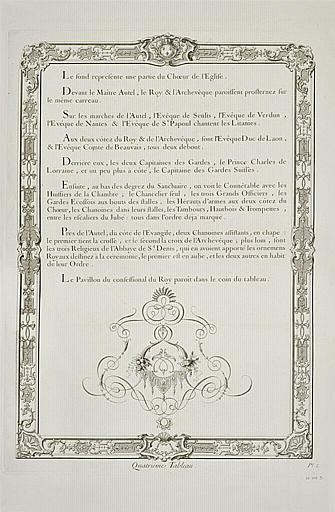 Le fond represente une partie du Chœur de l'Eglise.
Devant le Maitre Autel, le Roy & l'Archevêque paroissent prosternez sur
le même carreau.
Sur les marches de l'Autel, l'Evêque de Senlis, l'Evêque de Verdun,
l'Evêque de Nantes & l'Evêque de St. Papoul chantent les Litanies.
Aux deux côtez du Roy & de l'Archevêque, sont l'Evêque Duc de Laon,
& l'Evêque Comte de Beauvais, tous deux debout.
Derriere eux, les deux Capitaines des Gardes, le Prince Charles de
Lorraine, et un peu plus à côté, le Capitaine des Gardes Suisses.
Ensuite, au bas des degrez du Sanctuaire, on voit le Connétable avec les
Huissiers de la Chambre, le Chancelier seul, les trois Grands Officiers, les
Gardes Ecossois aux bouts des stalles, les Herauts d'armes aux deux côtez du
Chœur, les Chanoines dans leurs stalles, les Tambours, Hautbois & Trompettes,
entre les escaliers du Jubé: tous dans l'ordre déja marqué.
Près de l'Autel, du côté de l'Evangile, deux Chanoines assistans, en chape:
le premier tient la crosse, et le second la croix de l'Archevêque; plus loin, sont
les trois Religieux de l'Abbaye de St. Denis, qui en avoient apporté les ornemens
Royaux destinez à la ceremonie, le premier est en aube, et les deux autres en habit
de leur Ordre.
Le Pavillon du confessional du Roy paroit dans le coin du tableau.
Quatriémes Tableau.
Pl.